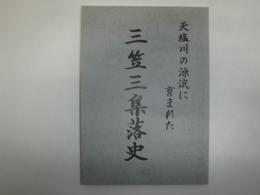 天塩川の源流に
育まれた
三笠三集落史